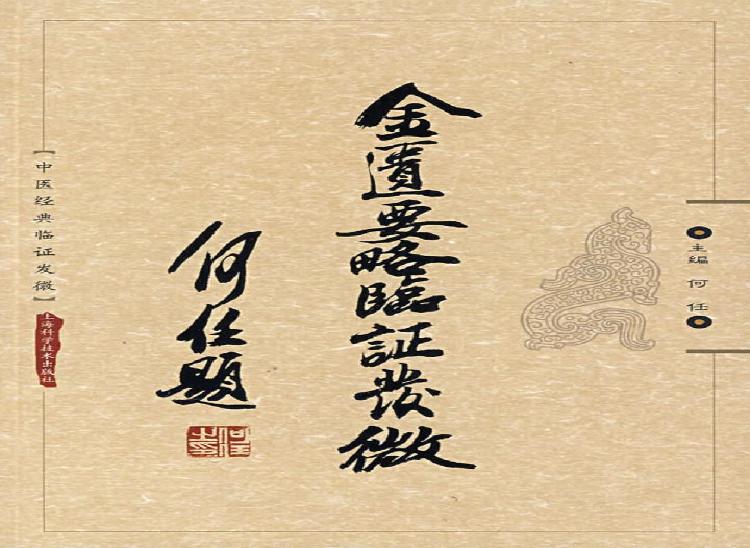 主编 何任
金匱要略臨証發微
何任題
【中医经典临证发微】
上海科学技术出版社